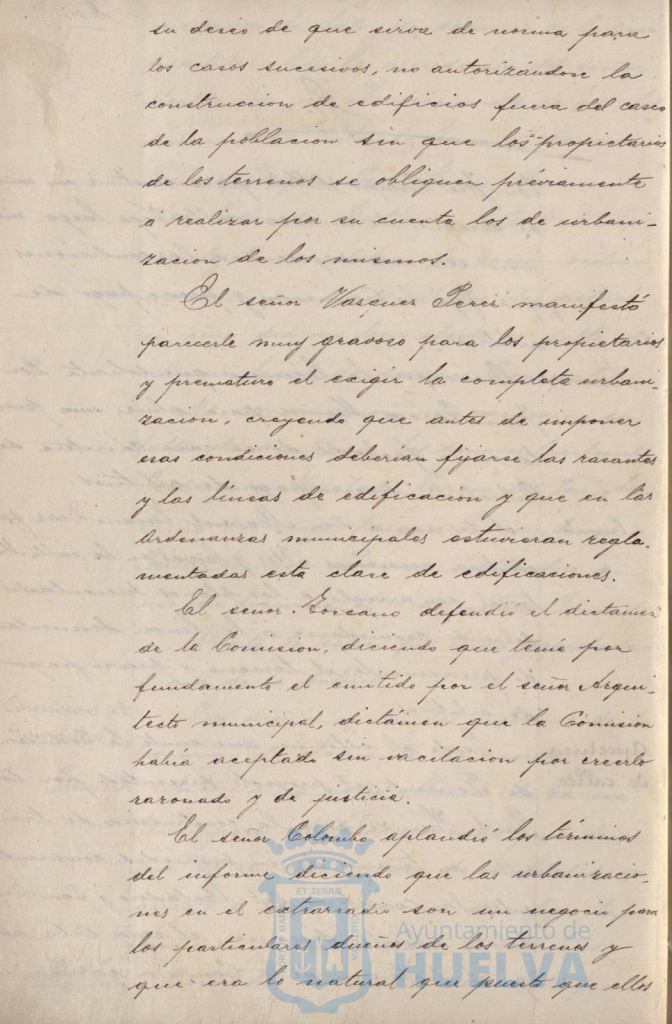 su deseo de que sirva de norma para
los casos sucesivos, no autorizándose la
construccion de edificios fuera del casco
de la poblacion sin que los propietarios
de los terrenos se obliguen préviamente
á realizar por su cuenta los de urbani-
zacion de los mismos.
El señor Vazquez Perez manifestó
parecerle muy gravoso para los propietarios
y prematuro el exigir la completa urbani-
zacion, creyendo que antes de imponer
esas condiciones deberian fijarse las rasantes
y las líneas de edificacion y que en las
Ordenanzas municipales estuvieran regla-
mentadas esta clase de edificaciones.
El señor Toscano defendió el dictámen
de la Comision, diciendo que tenia por
fundamento el emitido por el señor Arqui-
tecto municipal, dictámen que la Comision
habia aceptado sin vacilacion por creerlo
razonado y de justicia.
El señor Colombo aplaudió los términos
del informe diciendo que las urbanizacio-
nes en el extrarradio son un negocio para
los particulares dueños de los terrenos y
que era lo natural que puesto que ellos
PORTUS MARIS ET TERRÆ CUSTODIA
Ayuntamiento de
HUELVA